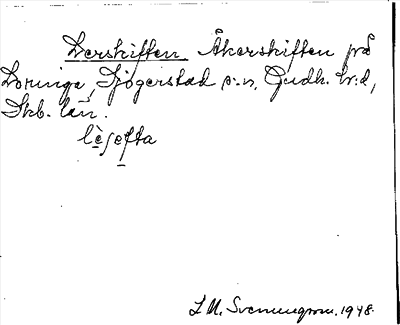 Lerskiften. Åkerskiften på
Loringe, Sjögerstad s:n, Gudh. hr:d,
Skb. län.
lèʃefta
L M. Svenungsson. 1948.